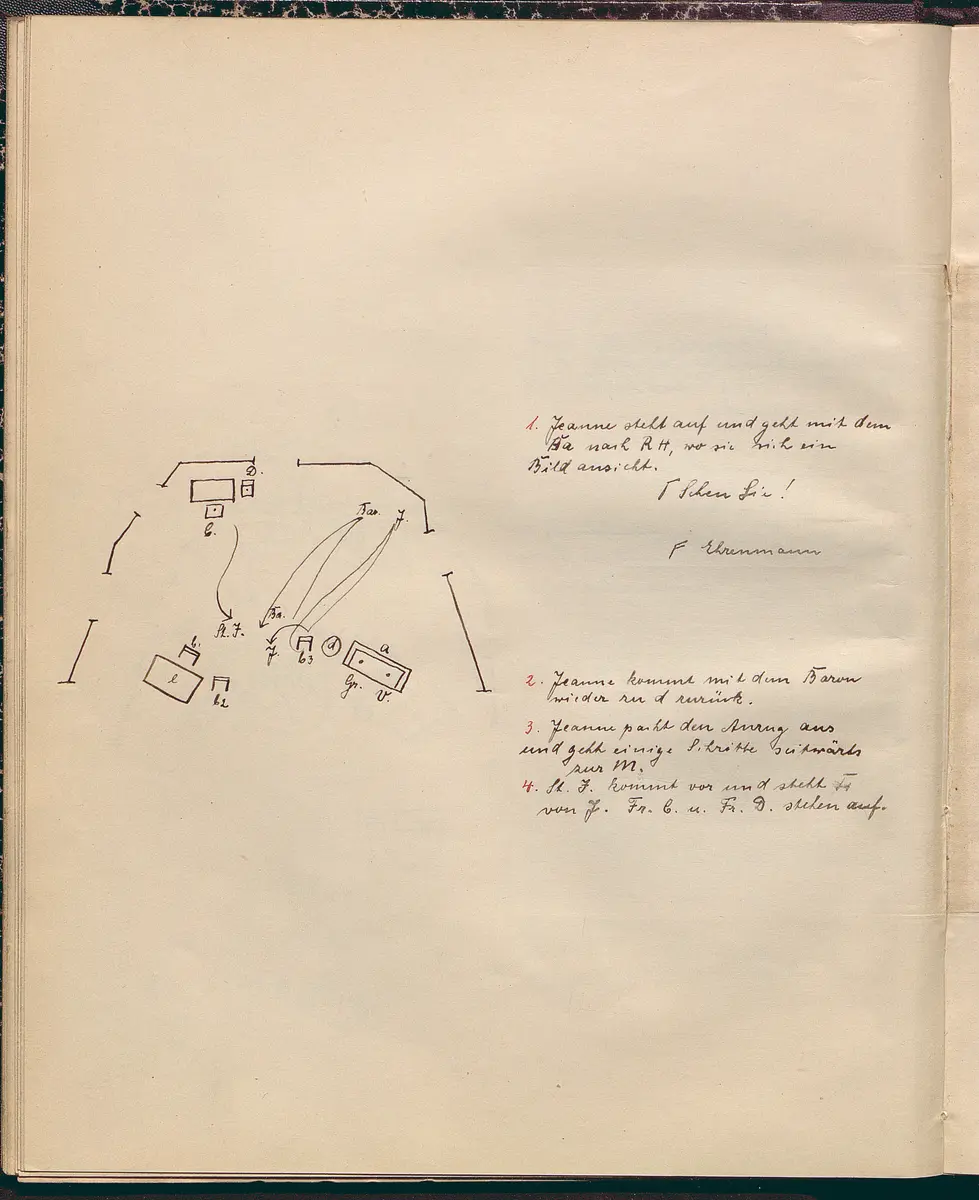 D.
C.
Bar. J.
St. F.
Ba.
J.
b.
e
b2
b3
d
a
Gr.
V.
1. Jeanne steht auf und geht mit dem
Ba nach RH, wo sie sich ein
Bild ansieht.
Γ Sehen Sie!
F Ehrenmann
2. Jeanne kommt mit dem Baron
wieder zu d zurück.
3. Jeanne packt den Anzug aus
und geht einige Schritte seitwärts
zur M.
4. St. F. kommt vor und steht
von J. Fr. C. u. Fr. D. stehen auf.